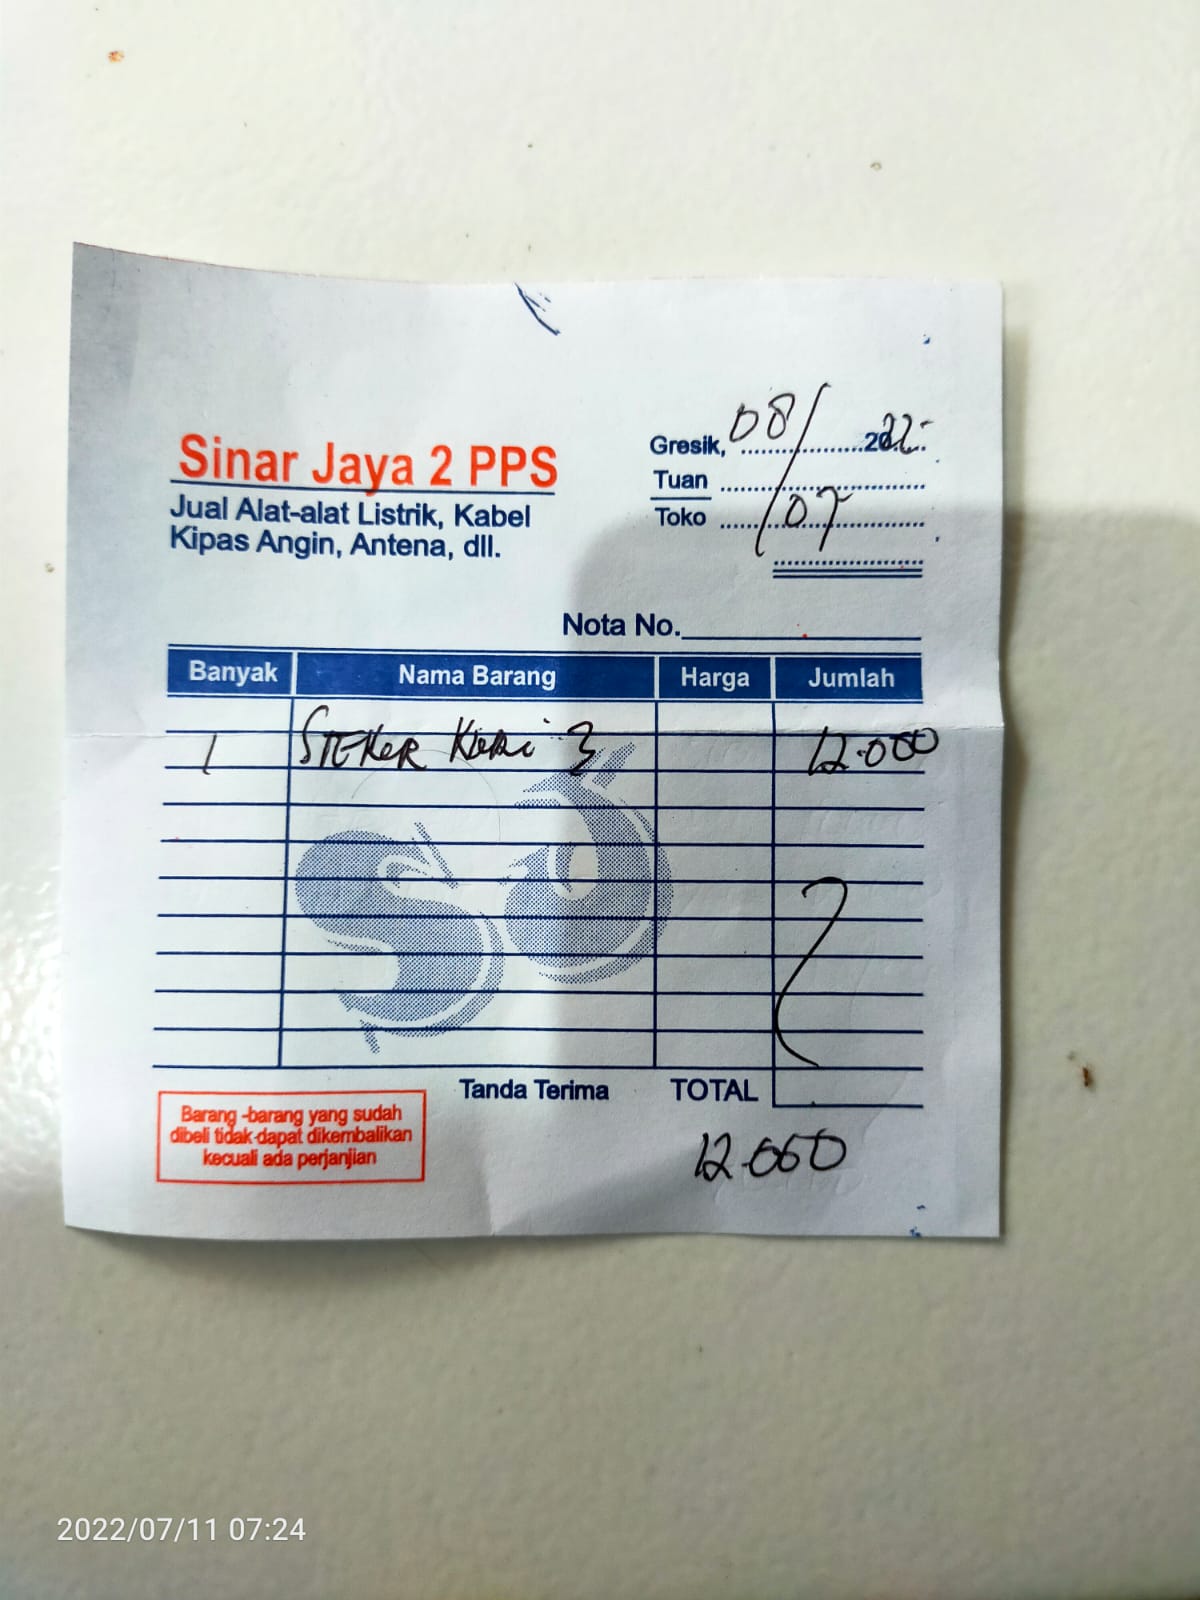 Sinar Jaya 2 PPS
Jual Alat-alat Listrik, Kabel
Kipas Angin, Antena, dll.
Gresik, 08/ 2022
Tuan
Toko 07
Nota No.
Banyak Nama Barang Harga Jumlah
1 STEKER 3 12.000
Tanda Terima TOTAL
12.000
Barang -barang yang sudah
dibeli tidak dapat dikembalikan
kecuali ada perjanjian
2022/07/11 07:24